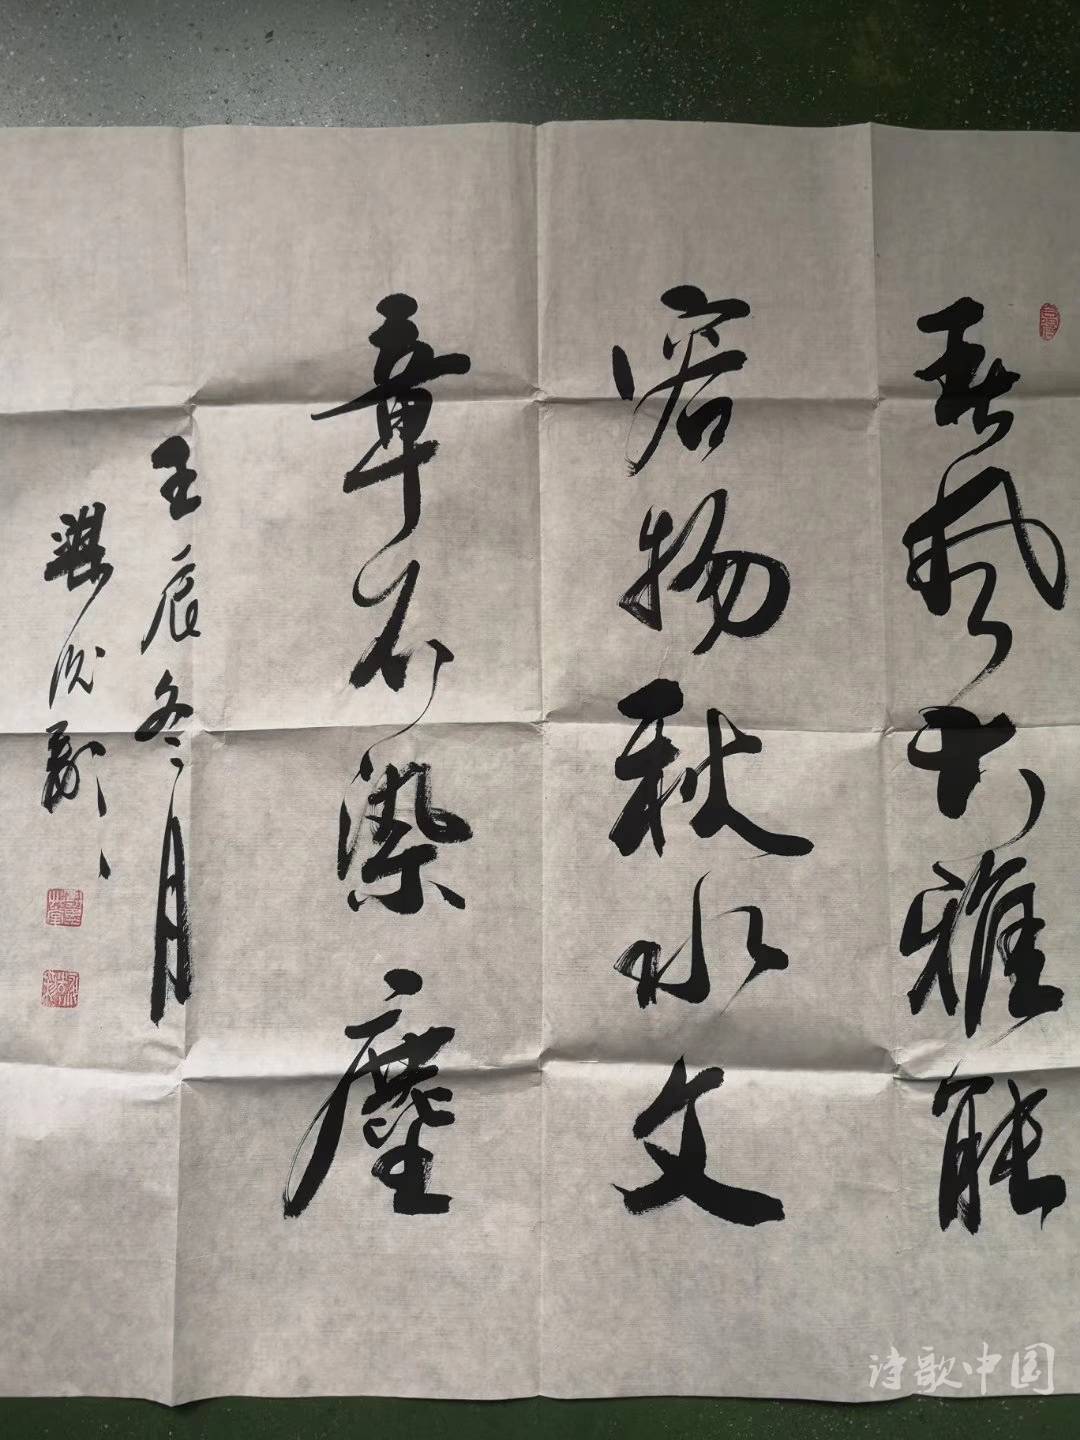 春风大雅能
容物秋水文
章不染尘
壬辰冬月
诗歌中国